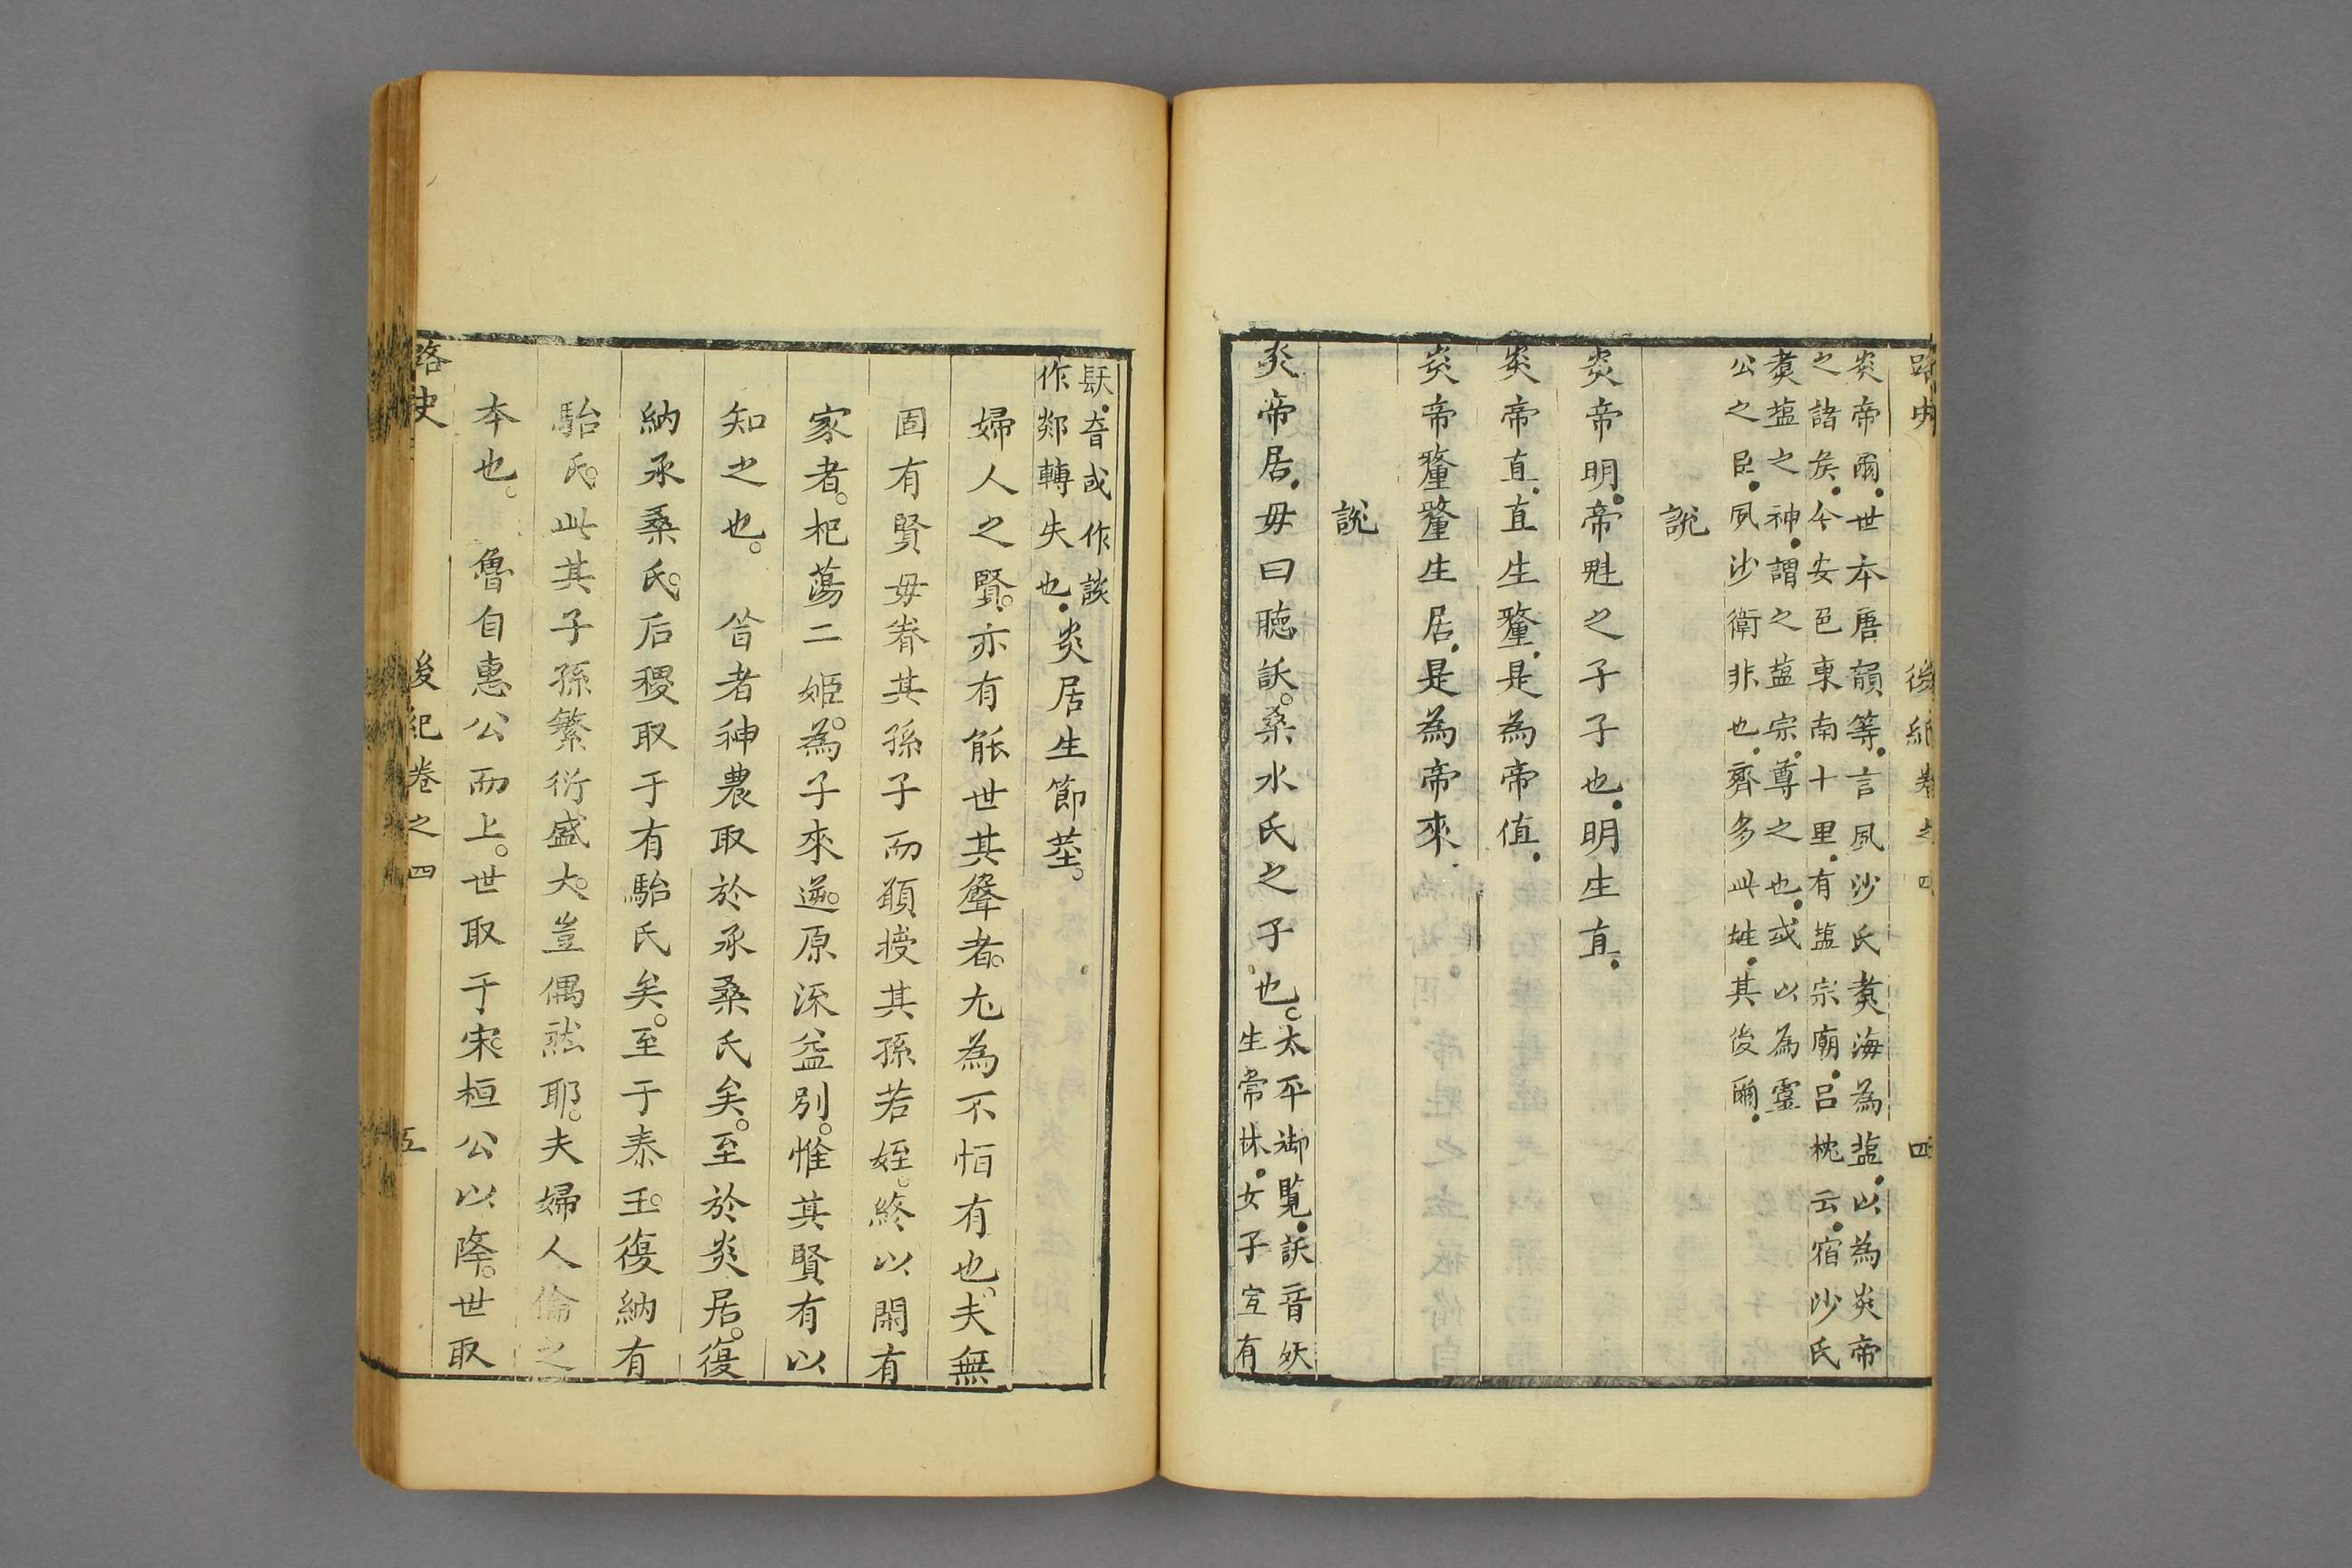 路史 後紀卷之四 四
炎帝爾世本唐韻等言夙沙氏煑海為䀋以為炎帝
之諸矦今安邑東南十里有䀋宗廟吕枕云宿沙氏
煑䀋之神謂之䀋宗尊之也或以為靈
公之臣夙沙衛非也齊多此姓其後爾
說
炎帝明帝魁之子子也明生直
炎帝直直生釐是為帝值
炎帝釐釐生居是為帝來
說
炎帝居毋曰聴訞桒水氏之子也
太平御覧訞音妖
生常林女子宣有
訞音或作談
作郯轉失也
炎居生節莖
婦人之賢亦有能世其聲者尤為不恒有也夫無
固有賢毋眷其孫子而願授其孫若姪終以閑有
家者杞蕩二姬為子來逆原深益別惟其賢有以
知之也 昝者神農取於承桑氏矣至於炎居復
納承桑氏后稷取于有駘氏矣至于泰王復納有
駘氏此其子孫繁衍盛大豈偶然耶夫婦人倫之
本也 魯自惠公而上世取于宋桓公以降世取
路史 後紀卷之四 五